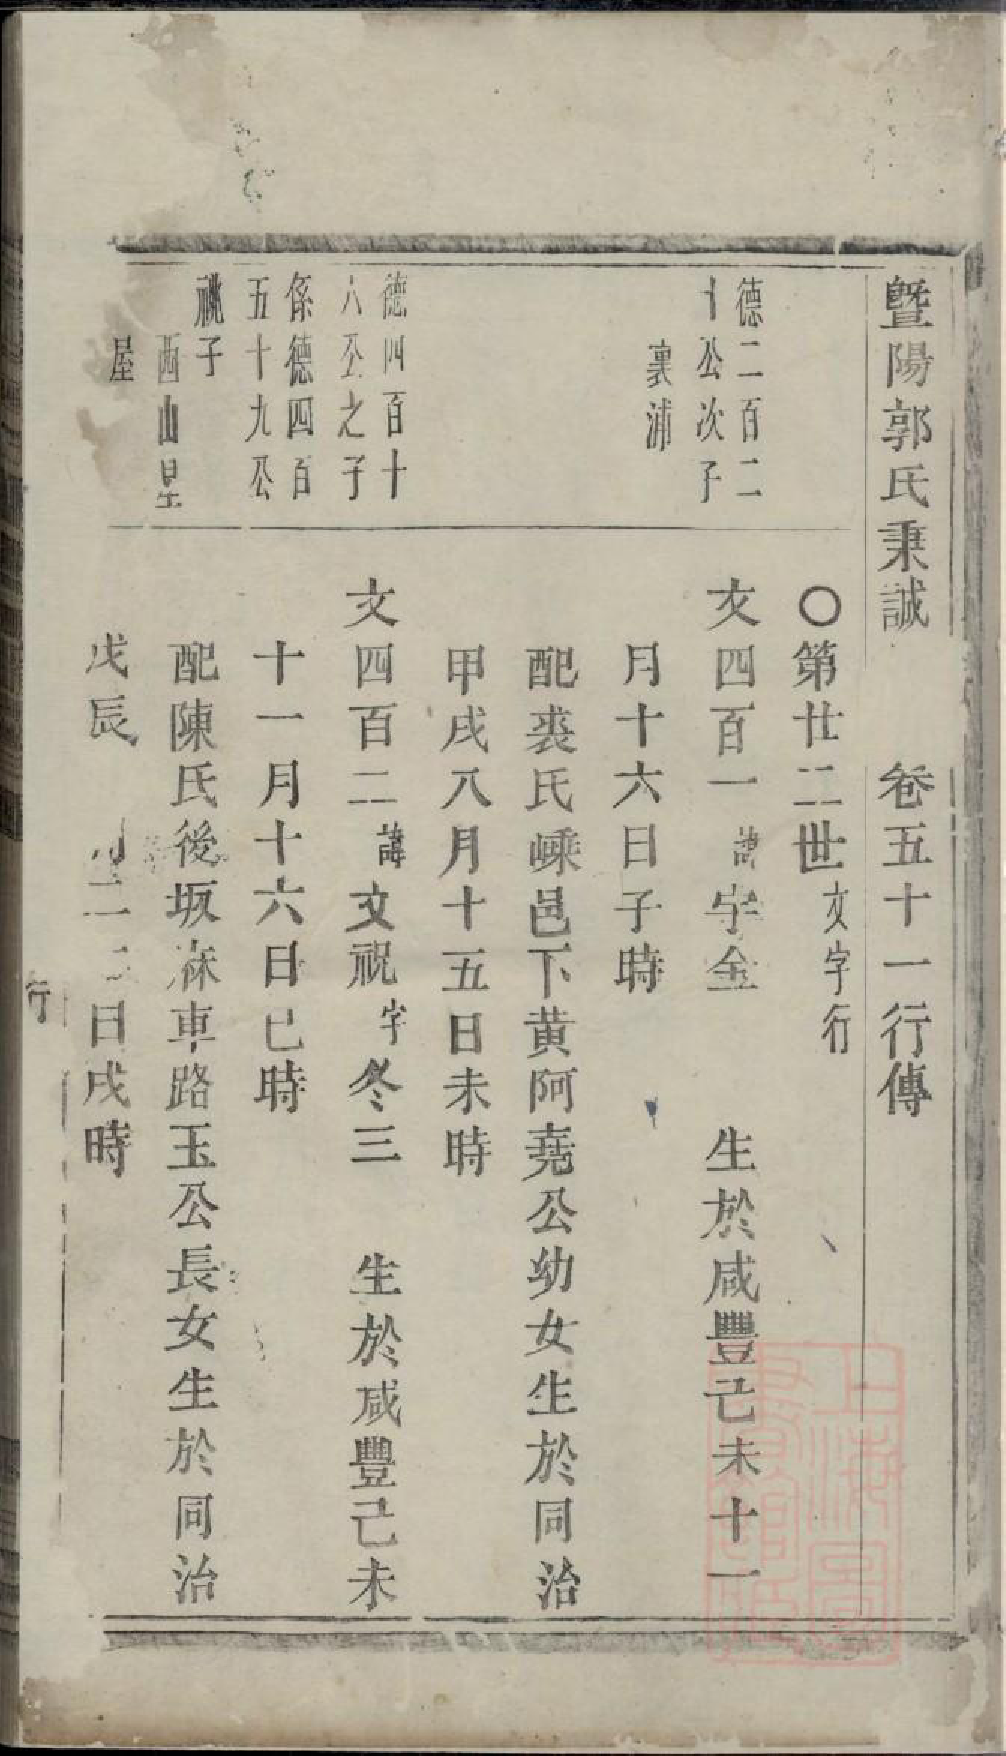 暨陽郭氏秉誠 卷五十一行傳
○第廿二世文字行
德二百二
十公次子
裏浦
文四百一諱 字金 生於咸豐己未十一
月十六日子時
配裘氏嵊邑下黄阿堯公幼女生於同治
甲戌八月十五日未時
德四百十
八公之子
係德四百
五十九公
祧子
西山
屋
文四百二諱文祝字冬三 生於咸豐己未
十一月十六日巳時
配陳氏後坂 車路玉公長女生於同治
戊辰 月二 日戌時
行
上海圖書館藏